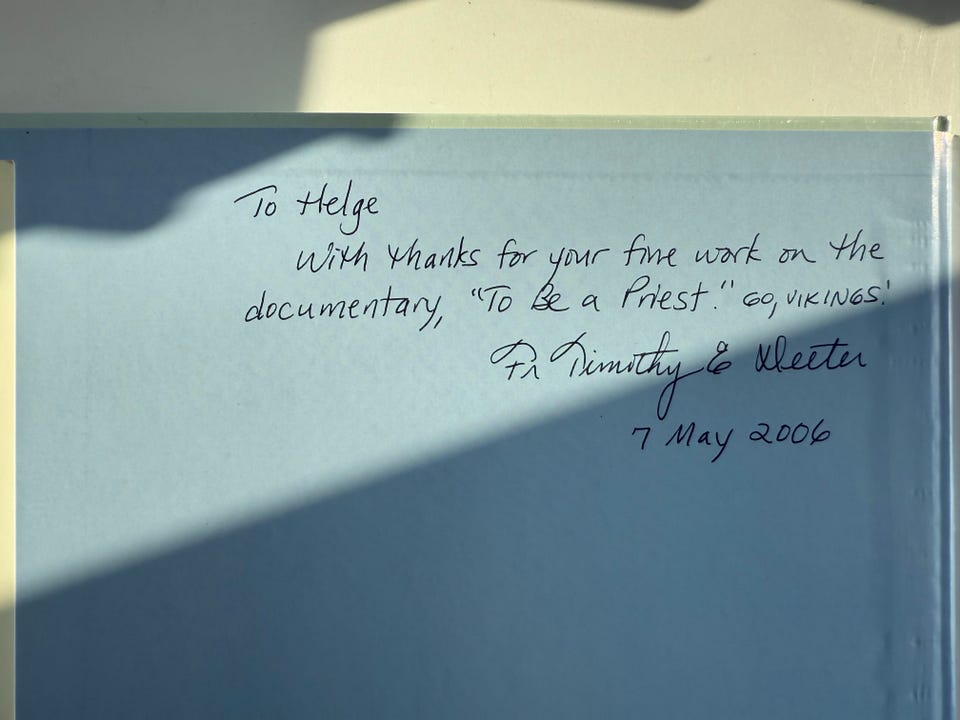 To Helge
With thanks for your fine work on the
documentary, "To Be a Priest." GO, VIKINGS!
Fr Timothy E Deeter
7 May 2006